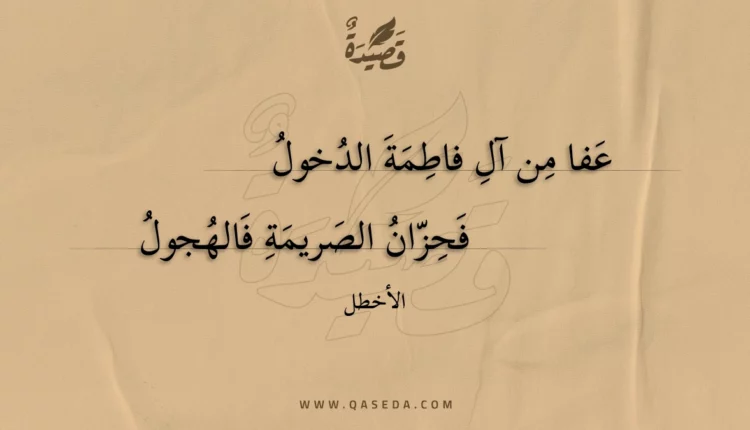 قَصِيدَةٌ
عَفا مِن آلِ فاطِمَةَ الدُخولُ
فَحِزّانُ الصَريمَةِ فَالهُجولُ
الأخطل
WWW.QASEDA.COM